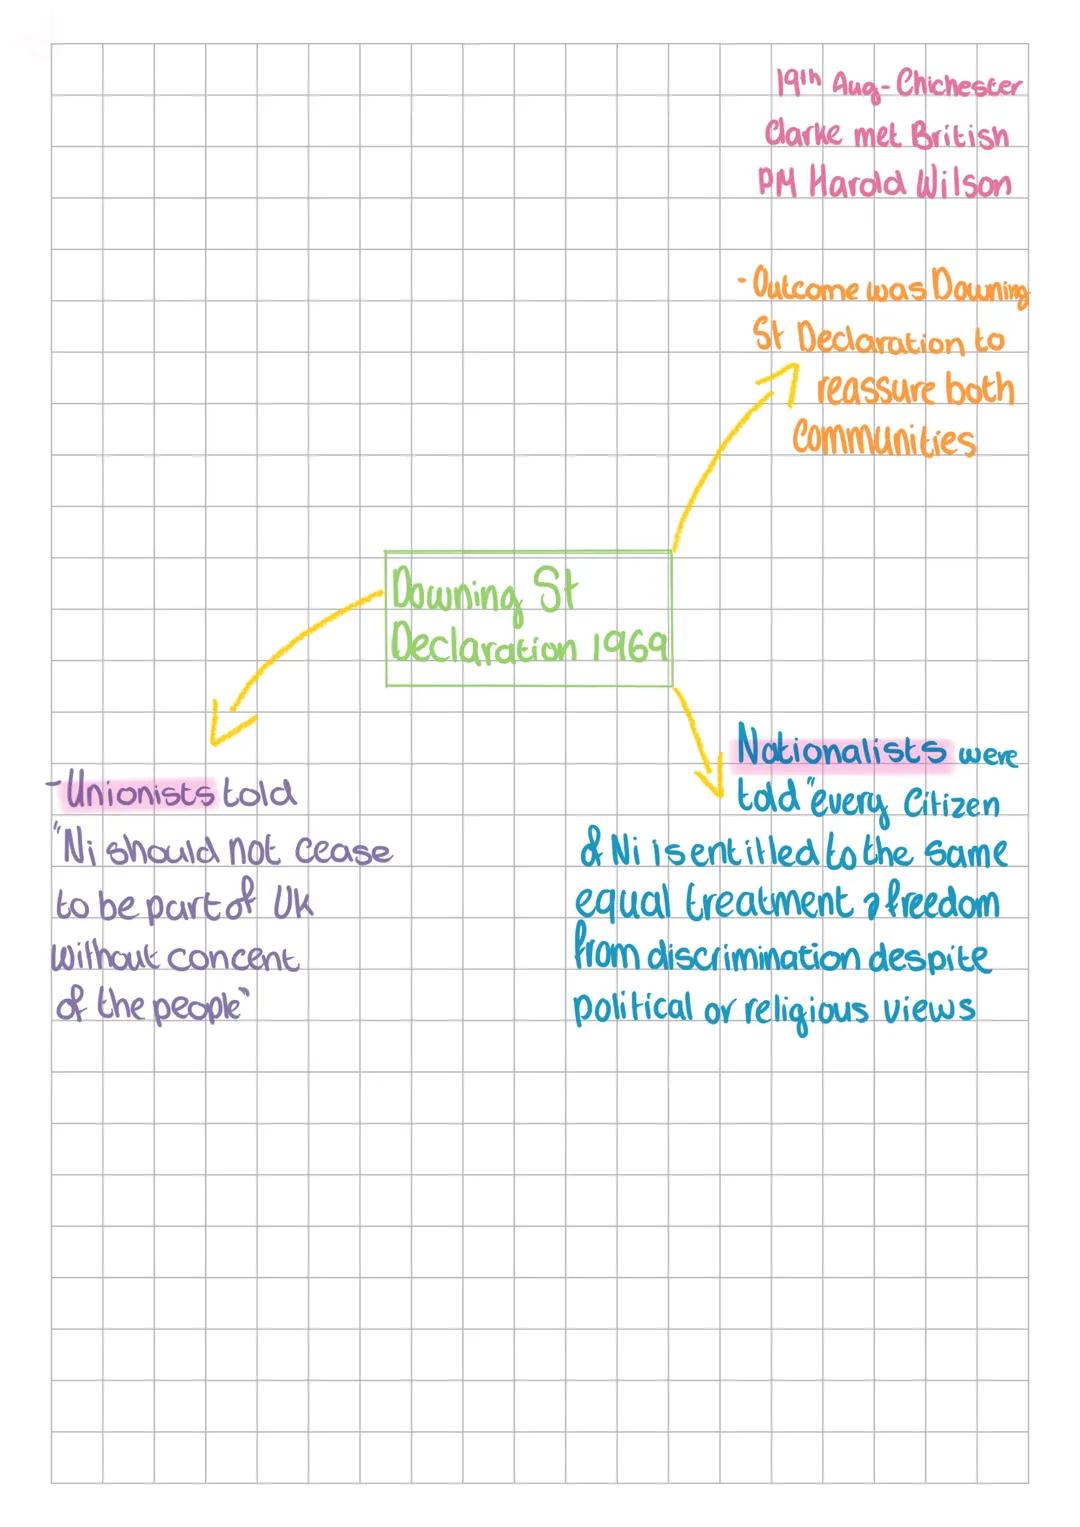 19th Aug - Chichester
Clarke met British
PM Harold Wilson
- Outcome was Downing
St Declaration to
reassure both
Communities
Downing St
Declaration 1969
- Unionists told
"Ni should not cease
to be part of UK
without concent
of the people"
Nationalists were
told "every Citizen
of Ni is entitled to the same
equal treatment & freedom
from discrimination despite
political or religious views